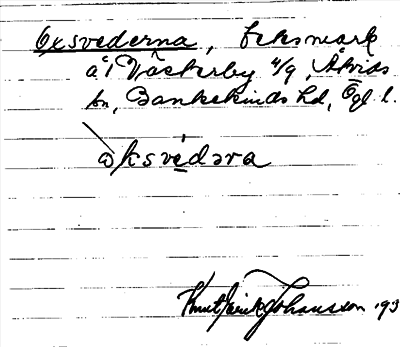 Oxsvederna, beksmark
å Västerby 4/9, Åtvids
sn, Bankekinds hd, Ögl.
oksvedəra
Knut Erik Johansson 193